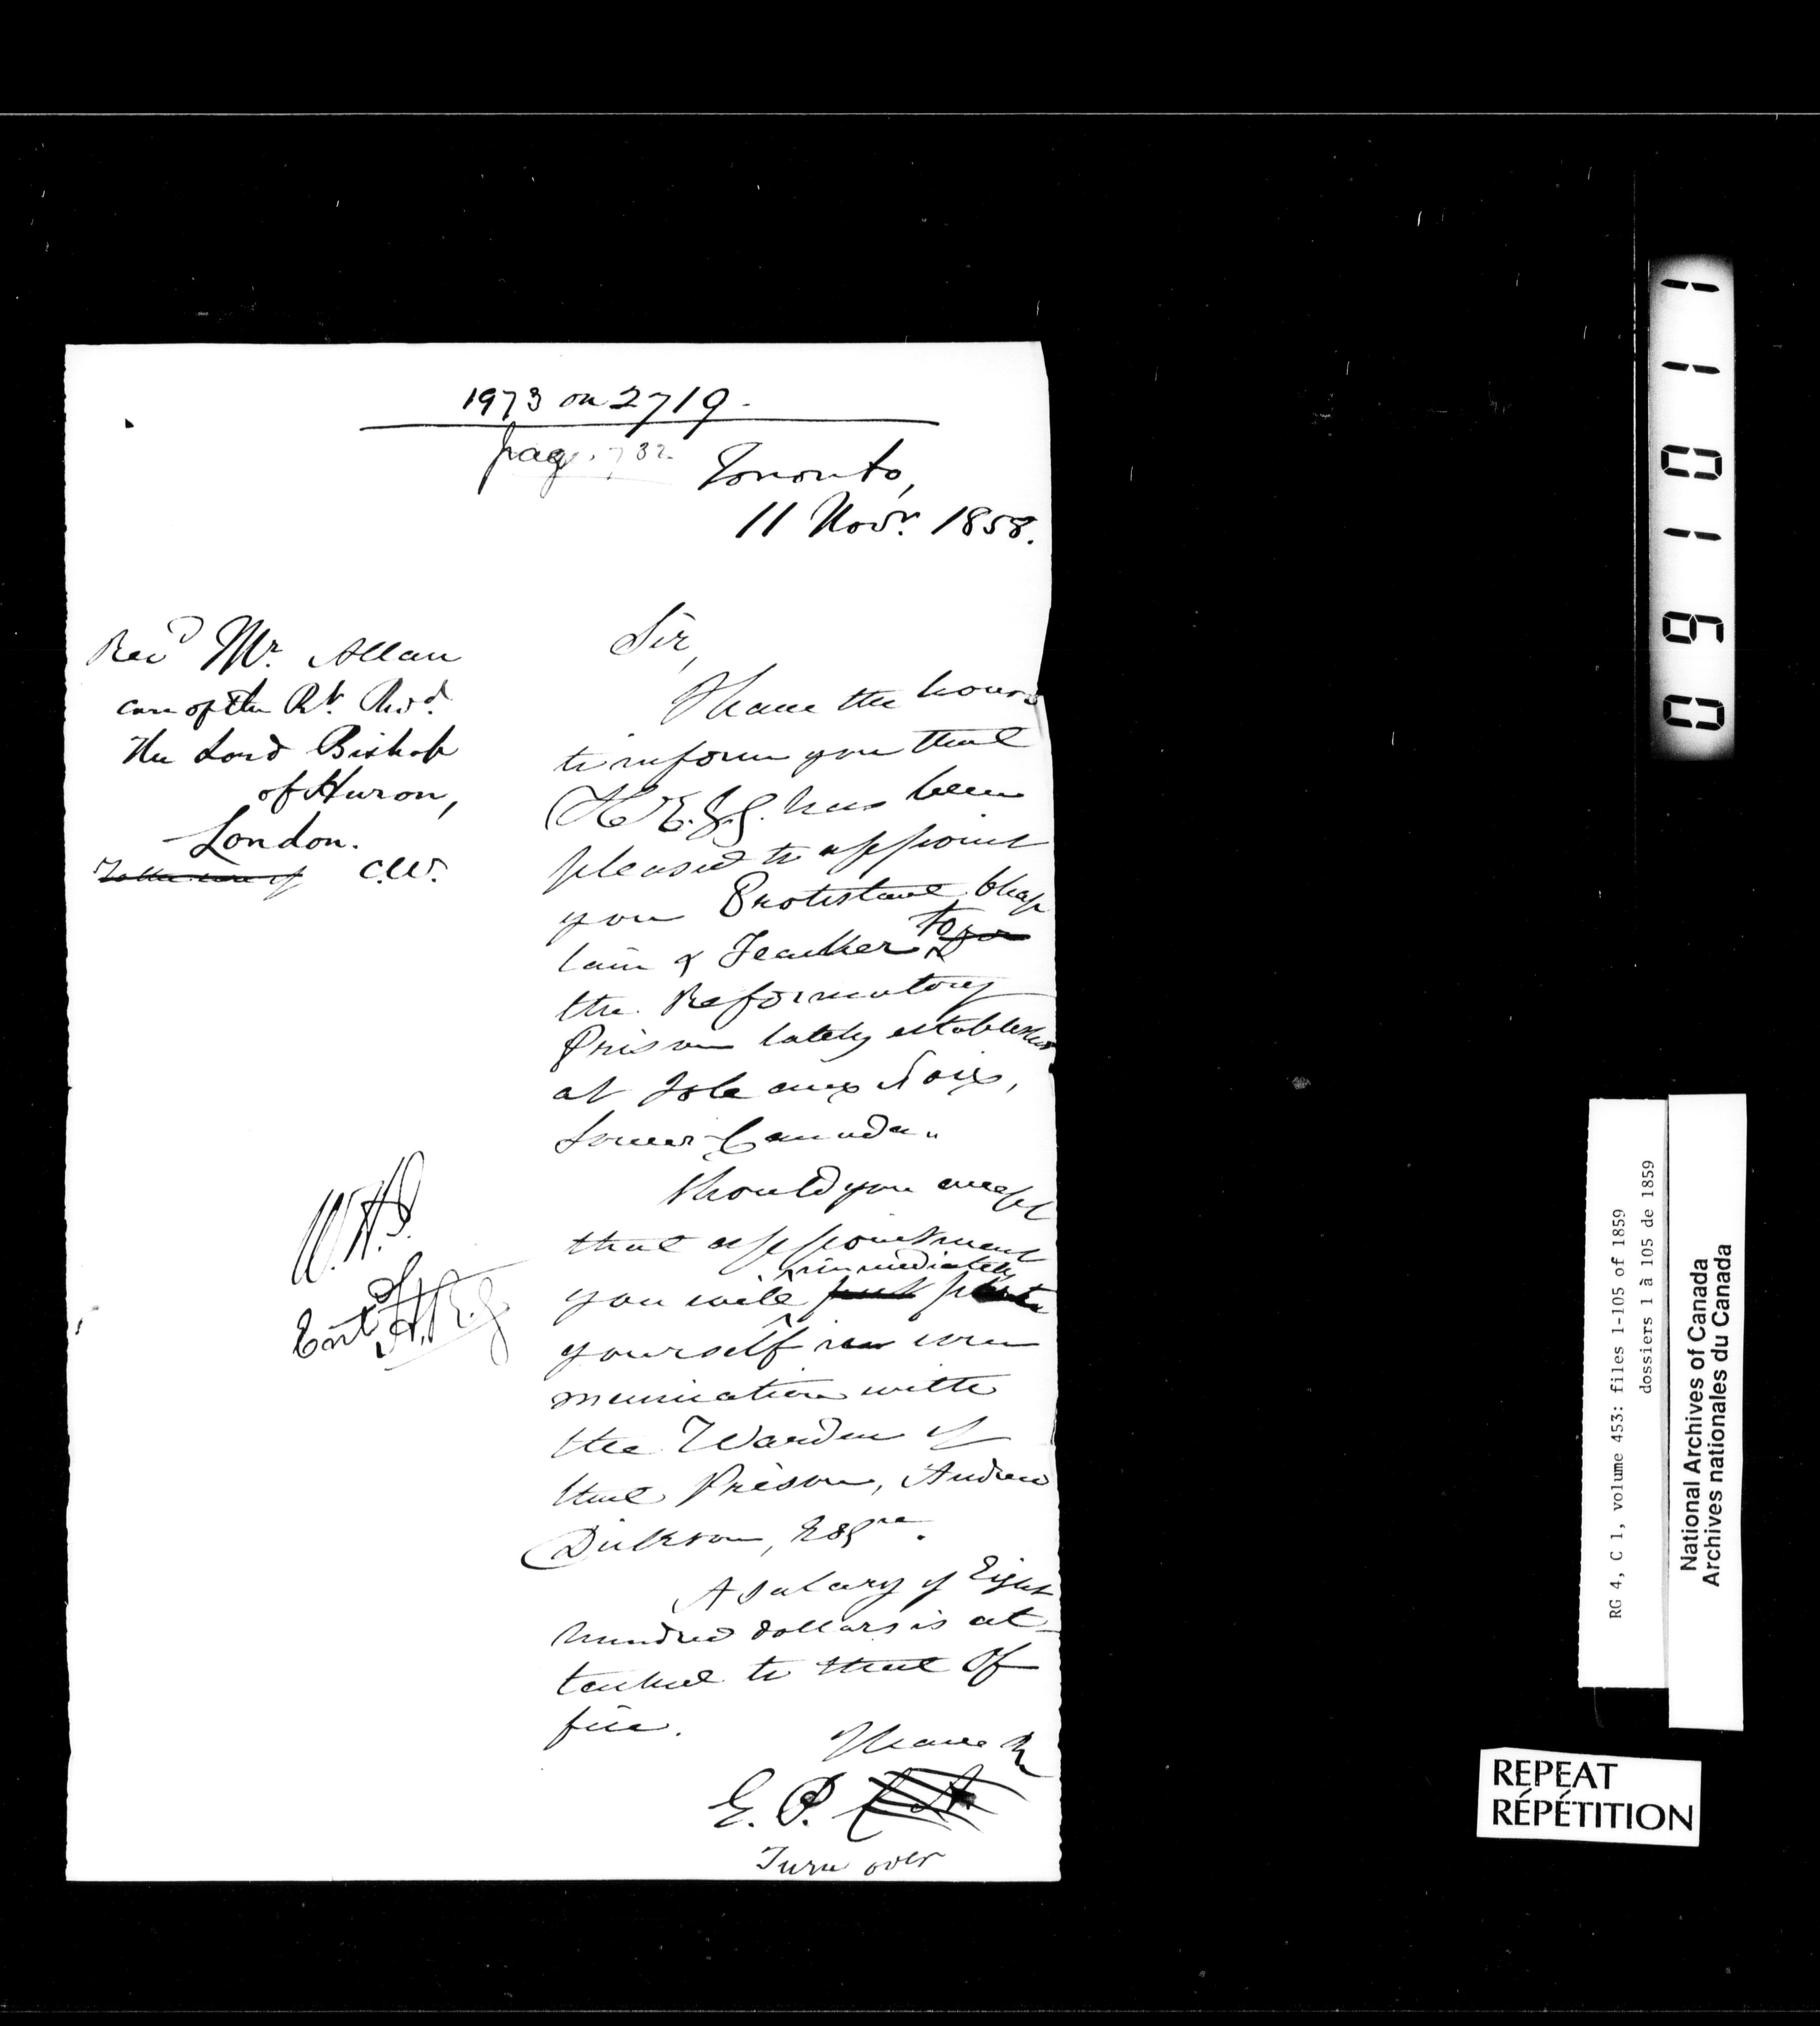 1973 on 2719.
page 732
Toronto,
11 Novr. 1858.
Revd Mr. Allan
care of the Rt. Revd.
The Lord Bishop
of Huron,
London.
To the care of C.W.
Sir,
I have the honor
to inform you that
H.E.G.G. has been
pleased to appoint
you Protestant Chap
lain & Teacher to
the Reformatory
Prison lately established
at Isle aux Noix,
Lower Canada.
Should you accept
that appointment
you will immediately put
yourself in com
munication with
the Warden of
that Prison, Andrew
Dickson, Esqre.
A salary of Eight
hundred dollars is at-
tached to that Of
fice.
I have &
E. P.
Turn over
W.H.J.
Entd
RG 4, C 1, volume 453: files 1-105 of 1859
dossiers 1 à 105 de 1859
National Archives of Canada
Archives nationales du Canada
REPEAT
RÉPÉTITION
091011